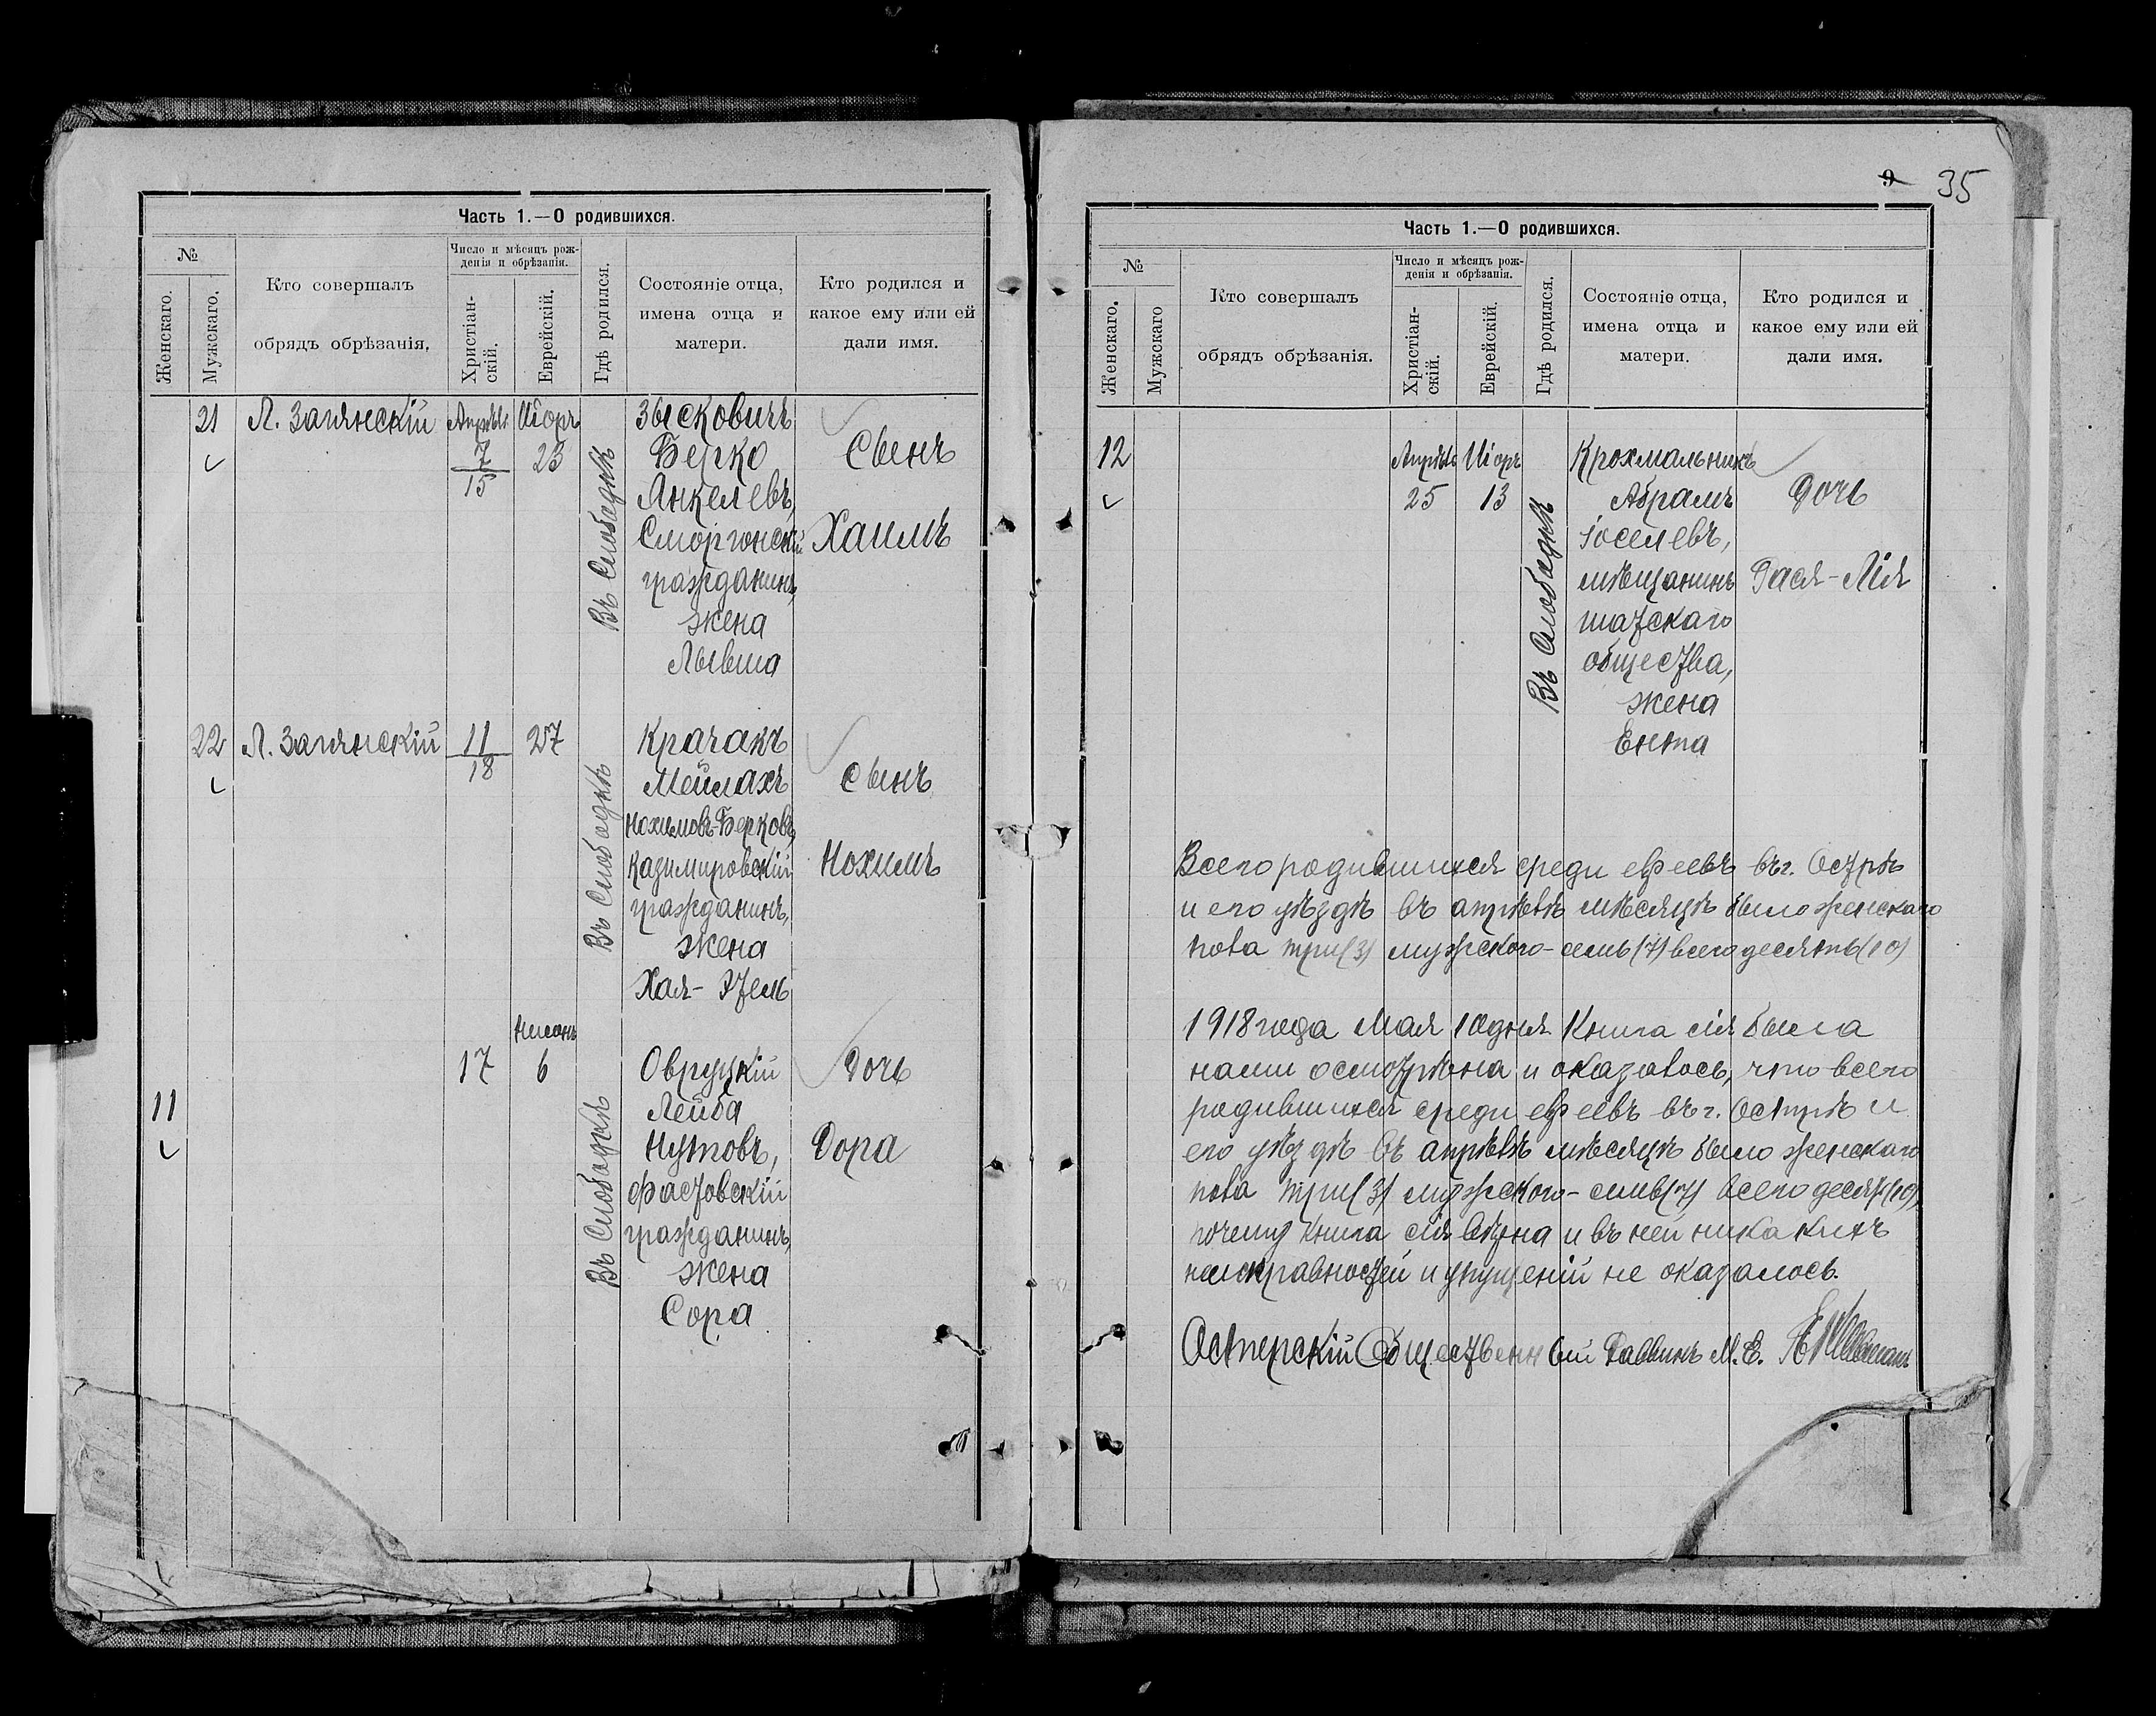 Часть 1.—О родившихся.
№
Женскаго.
Мужскаго.
Кто совершалъ
обрядъ обрѣзанія,
Число и мѣсяцъ рож-
денія и обрѣзанія.
Христіан-
скій.
Еврейскій.
Гдѣ родился.
Состояніе отца,
имена отца и
матери.
Кто родился и
какое ему или ей
дали имя.
21 Л. Загянскій Апрѣль Иіоръ Зысковичъ
7 23 Берко Сынъ
15
Въ Слободкѣ
Янкелевъ,
Сморгонскій Хаимъ
гражданинъ,
жена
Лывша
22 Л. Загянскій 11 27 Крачакъ
18
Въ Слободкѣ
Мейлахъ Сынъ
Нохимовъ-Берковъ,
Казимировскій Нохимъ
гражданинъ,
жена
Хая-Этель
Нисонъ
17 6 Овруцкій Дочь
11
Въ Слободкѣ
Лейба
Нутовъ, Дора
Фастовскій
гражданинъ,
жена
Сора
9 35
Часть 1.—О родившихся.
№
Женскаго.
Мужскаго
Кто совершалъ
обрядъ обрѣзанія.
Число и мѣсяцъ рож-
денія и обрѣзанія.
Христіан-
скій.
Еврейскій.
Гдѣ родился.
Состояніе отца,
имена отца и
матери.
Кто родился и
какое ему или ей
дали имя.
12 Апрѣль Иіоръ Крохмальникъ
25 13 Абрамъ Дочь
Въ Слободкѣ
Іоселевъ,
мѣщанинъ Дася-Лія
шатскаго
общества,
жена
Ента
Всего родившихся среди евреевъ въ г. Острѣ
и его уѣздѣ въ апрѣлѣ мѣсяцѣ было женскаго
пола три (3) мужского-семь (7) всего десять (10)
1918 года Мая 1 одня Книга сія была
нами осмотрѣна и оказалось, что всего
родившихся среди евреевъ въ г. Острѣ и
его уѣздѣ въ апрѣлѣ мѣсяцѣ было женскаго
пола три (3) мужского-семь (7) всего десять (10),
почему книга сія вѣрна и въ ней никакихъ
неисправностей и упущеній не оказалось.
Остерскій Общественный Раввинъ М. Е.